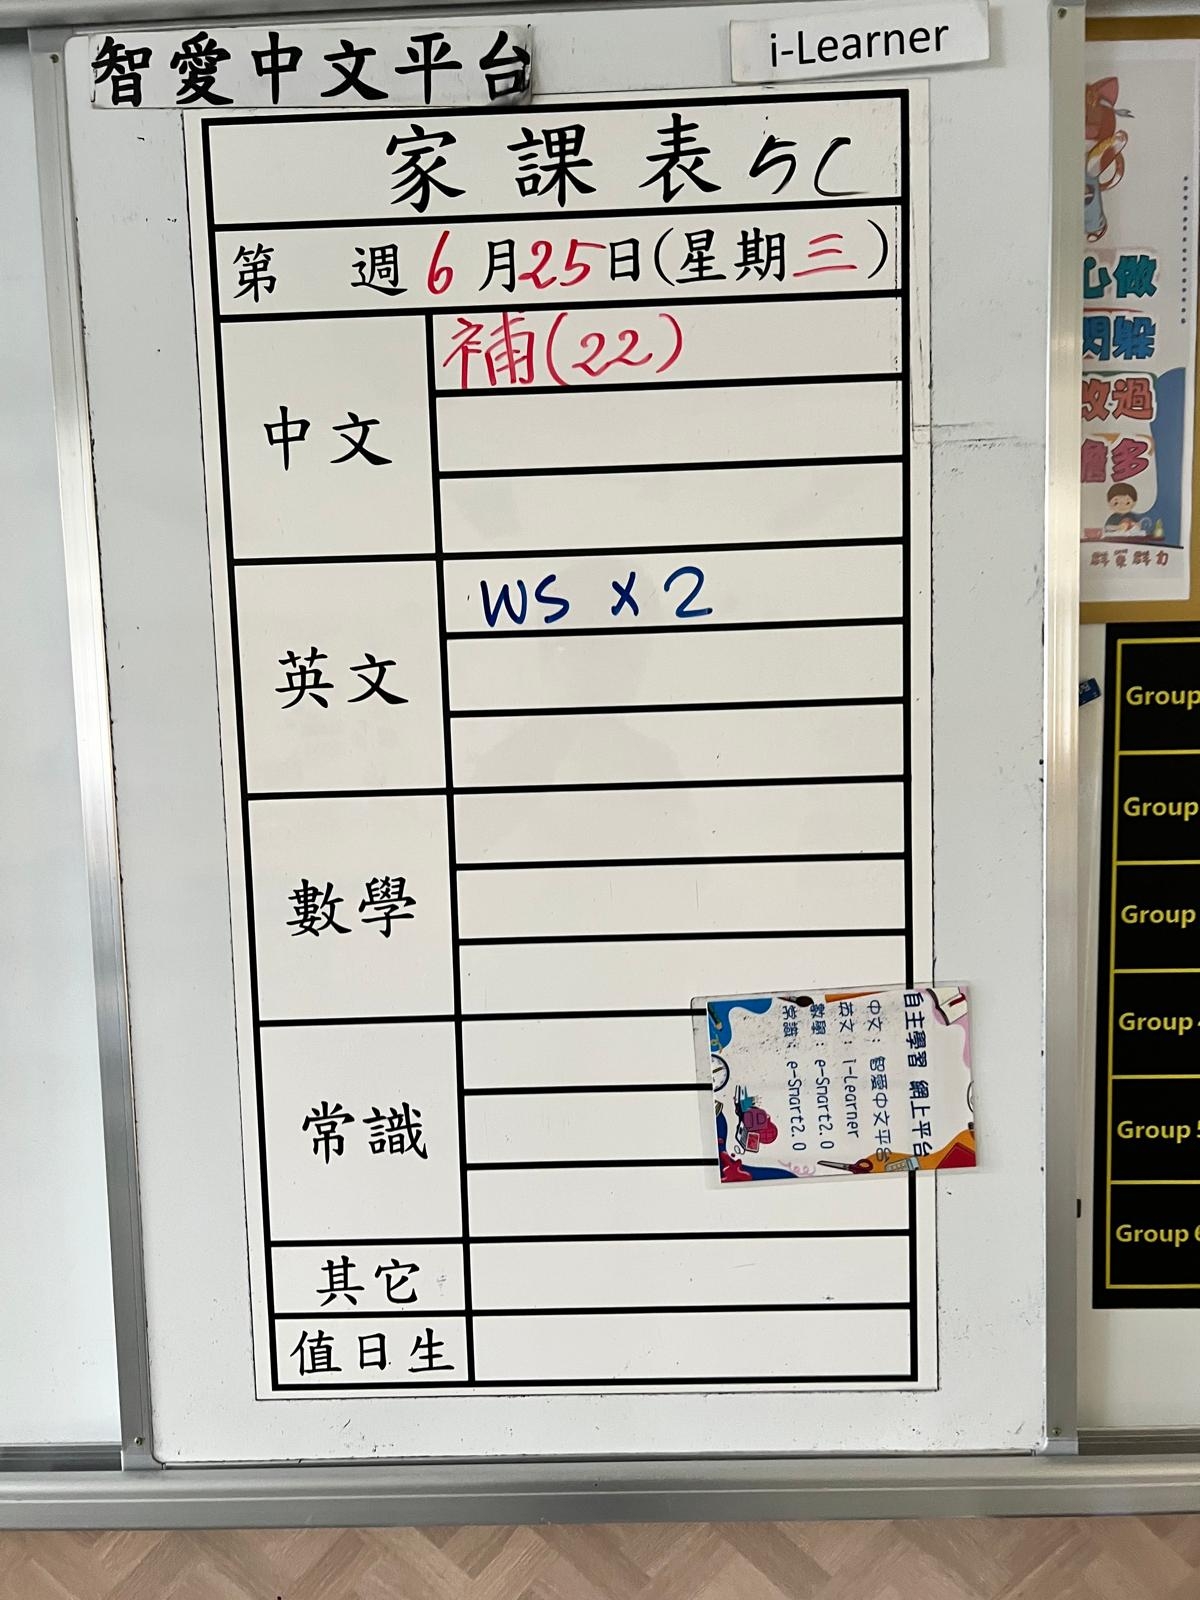 智愛中文平台
i-Learner
家課表 5C
第 週 6月25日(星期三)
中文
補(22)
英文
WS x 2
數學
常識
其它
值日生
自主學習 網上平台
中文：智愛中文平台
英文：i-Learner
數學：e-Smart2.0
常識：e-Smart2.0
心做
躲
改過
擔多
群策群力
Group
Group
Group
Group
Group
Group 6